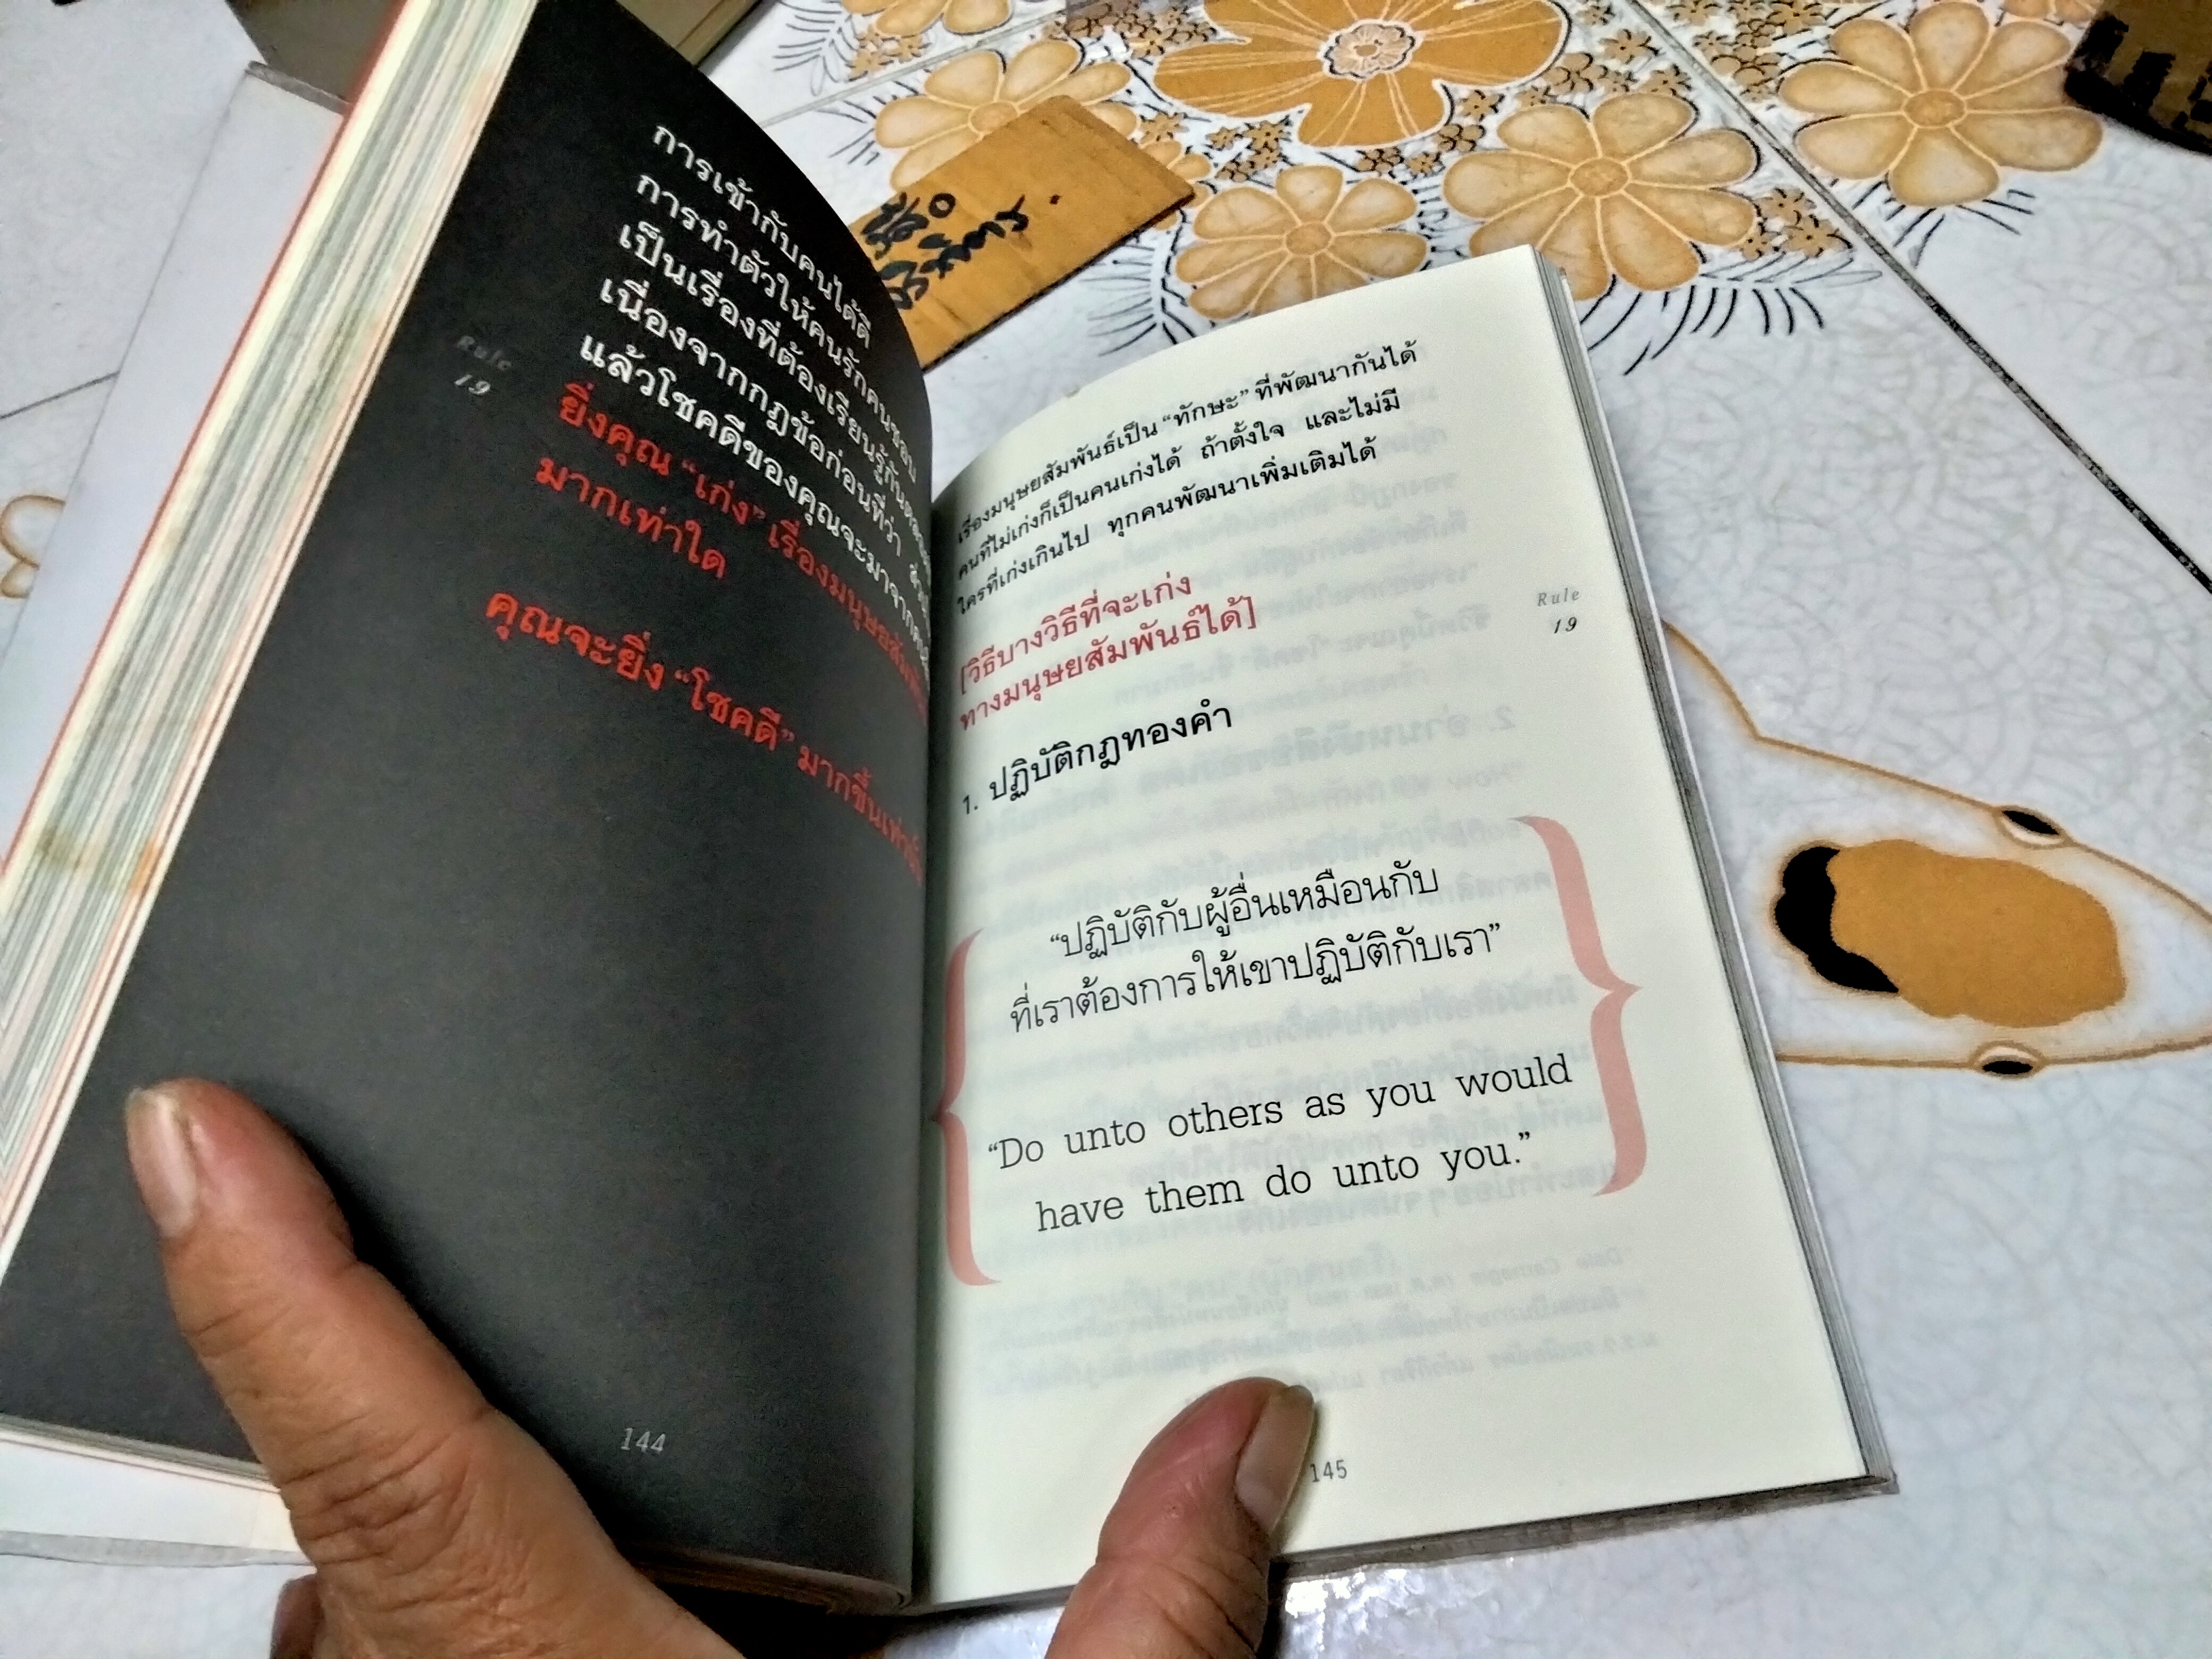 การเข้ากับคนได้ดี
การทำตัวให้คนรักคนชอบ
เป็นเรื่องที่ต้องเรียนรู้กัน
เนื่องจากกฎข้อก่อนที่ว่า
แล้วโชคดีของคุณจะมาจาก
ยิ่งคุณ “เก่ง” เรื่องมนุษยสัมพันธ์
มากเท่าใด
คุณจะยิ่ง “โชคดี” มากขึ้นเท่านั้น
Rule
19
144
เรื่องมนุษยสัมพันธ์เป็น “ทักษะ” ที่พัฒนากันได้
คนที่ไม่เก่งก็เป็นคนเก่งได้ ถ้าตั้งใจ และไม่มี
ใครที่เก่งเกินไป ทุกคนพัฒนาเพิ่มเติมได้
[วิธีบางวิธีที่จะเก่ง
ทางมนุษยสัมพันธ์ได้]
Rule
19
1. ปฏิบัติกฎทองคำ
“ปฏิบัติกับผู้อื่นเหมือนกับ
ที่เราต้องการให้เขาปฏิบัติกับเรา”
“Do unto others as you would
have them do unto you.”
145